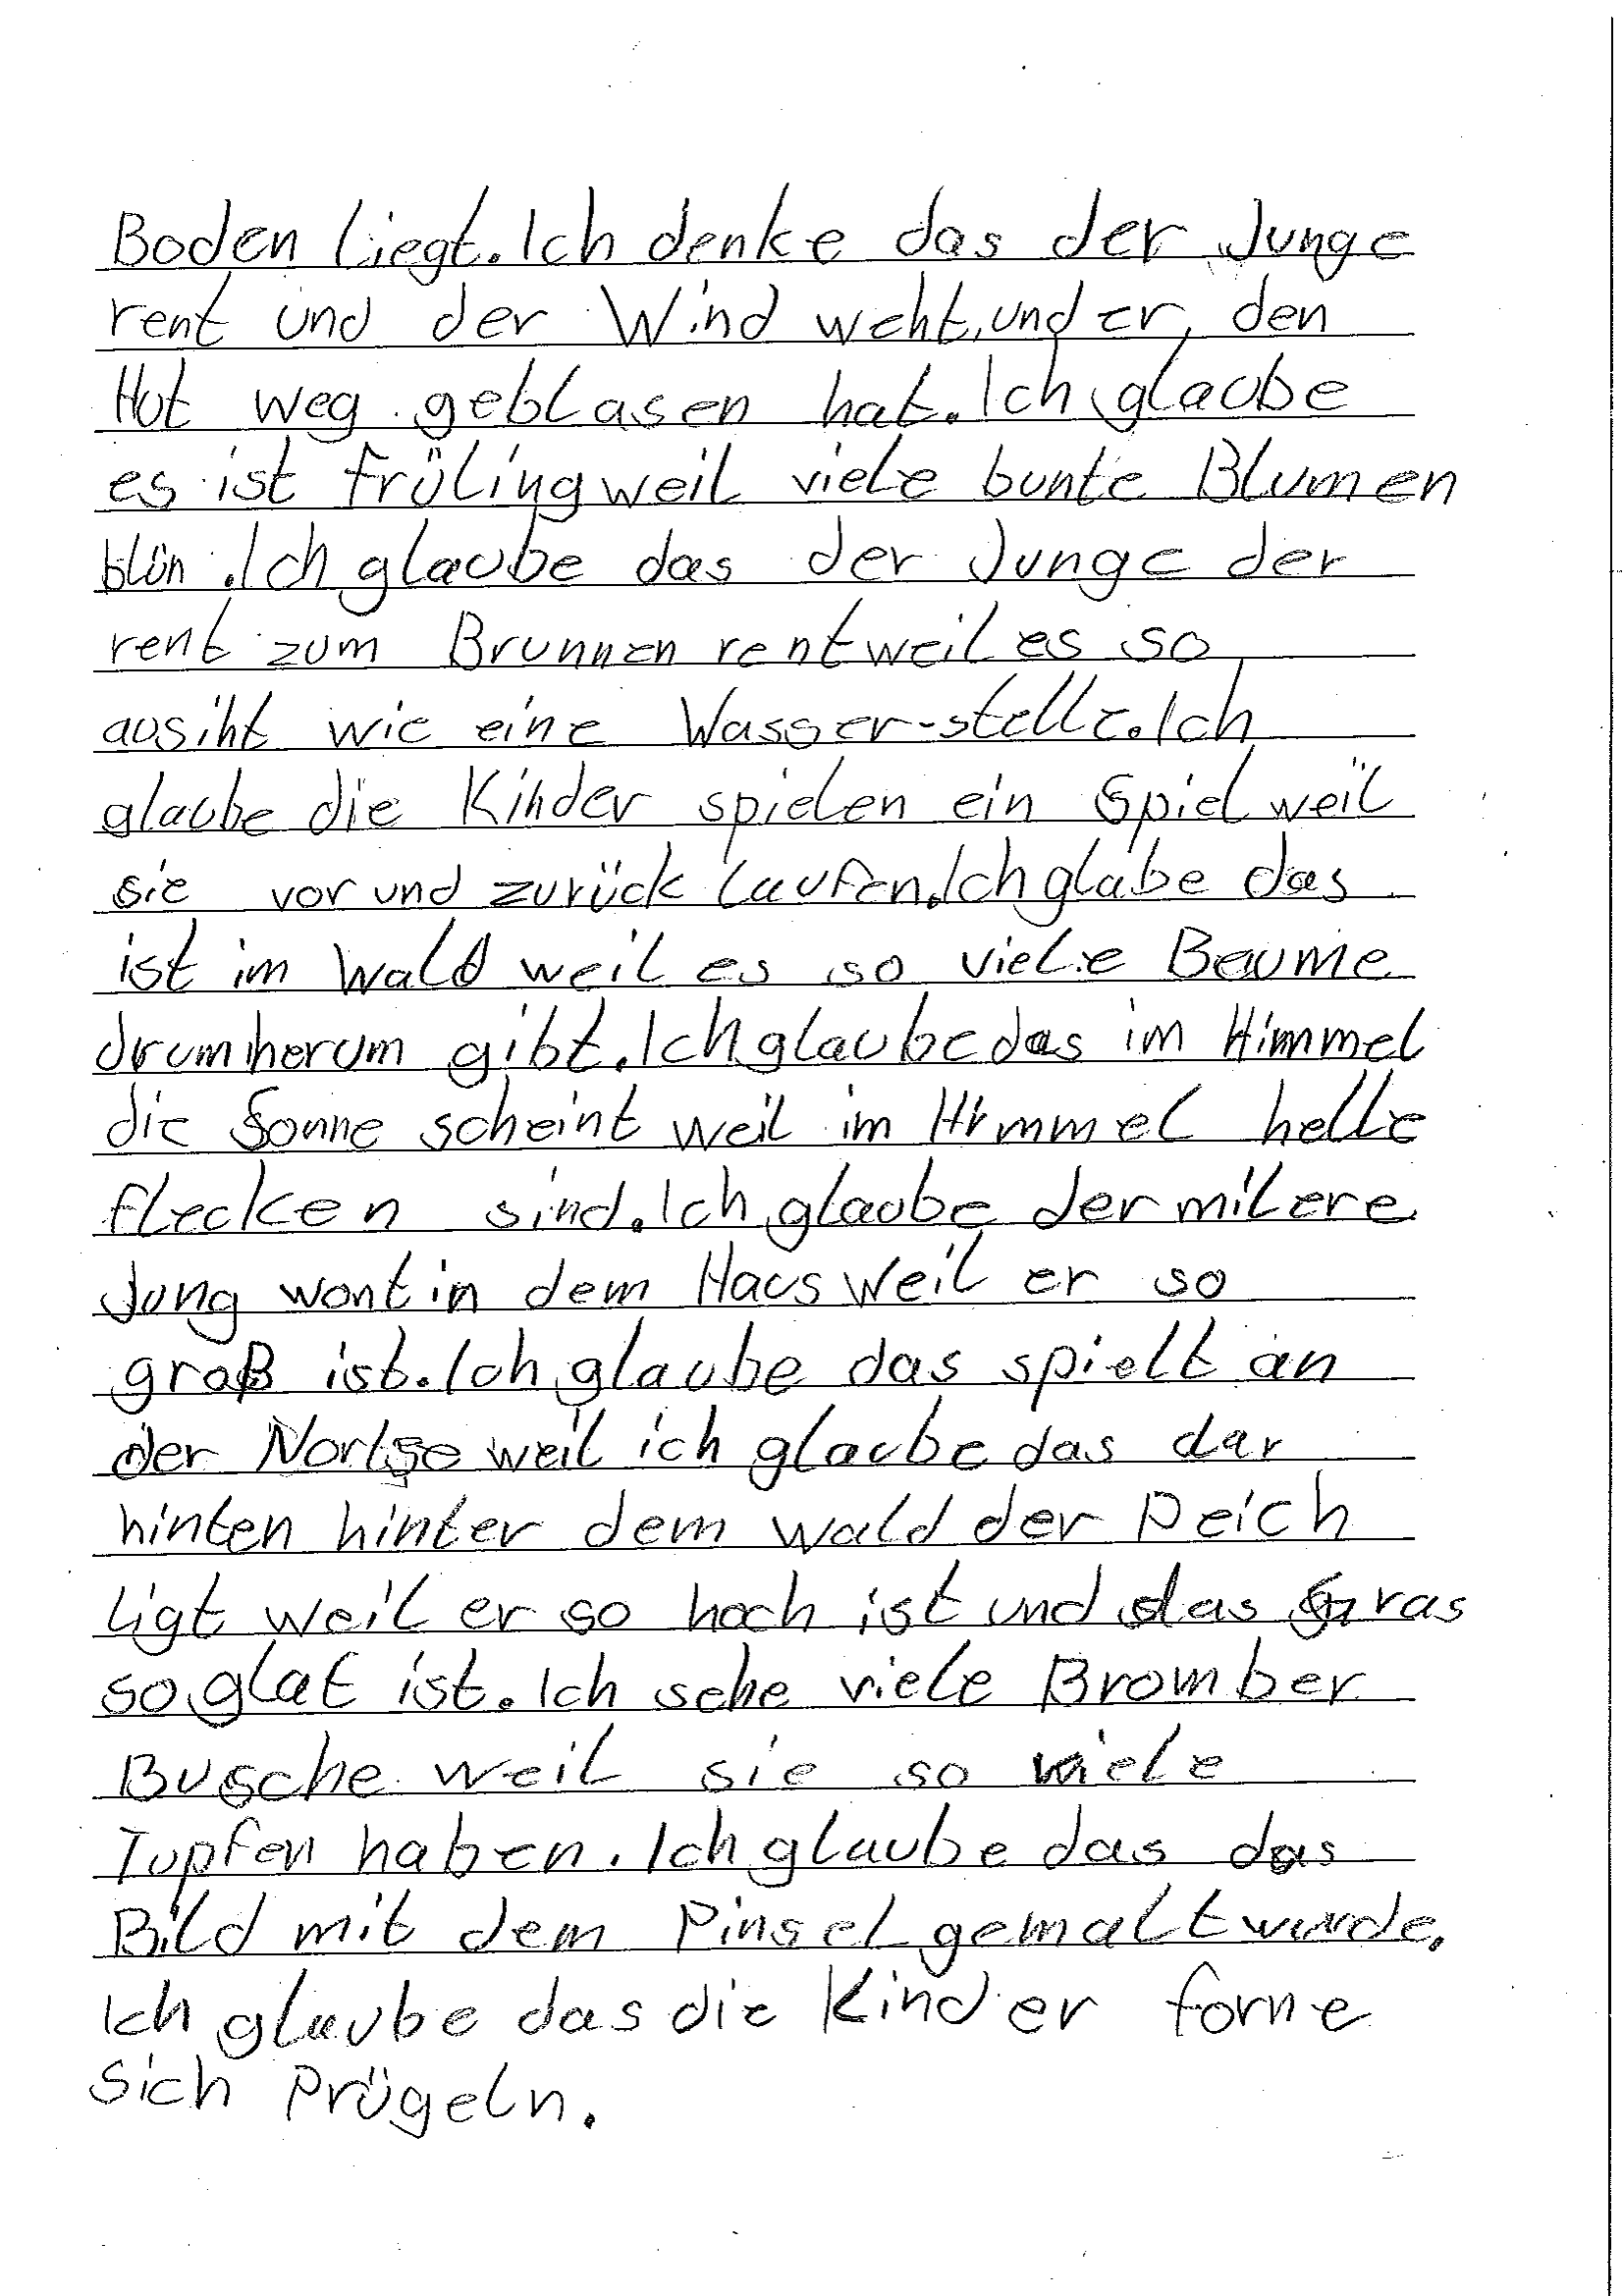 Boden liegt. Ich denke das der Junge
rent und der Wind weht, und er, den
Hut weg geblasen hat. Ich glaube
es ist frülingweil viele bunte Blumen
blün. Ich glaube das der Junge der
rent zum Brunnen rentweil es so
ausiht wie eine Wasser-stelle. Ich
glaube die Kinder spielen ein Spiel weil
sie vor und zurück laufen. Ich glabe das
ist im Wald weil es so viele Beume
drumherum gibt. Ich glaube das im Himmel
die Sonne scheint weil im Himmel helle
flecken sind. Ich glaube der milere
Jung wont in dem Haus weil er so
groß ist. Ich glaube das spielt an
der weil ich glaube das dar
hinten hinter dem wald der Deich
ligt weil er so hoch ist und das Gras
so glat ist. Ich sehe viele Bromber
Busche weil sie so viele
Tupfen haben. Ich glaube das das
Bild mit dem Pinsel gemalt wurde.
Ich glaube das die Kinder forne
sich Prügeln.